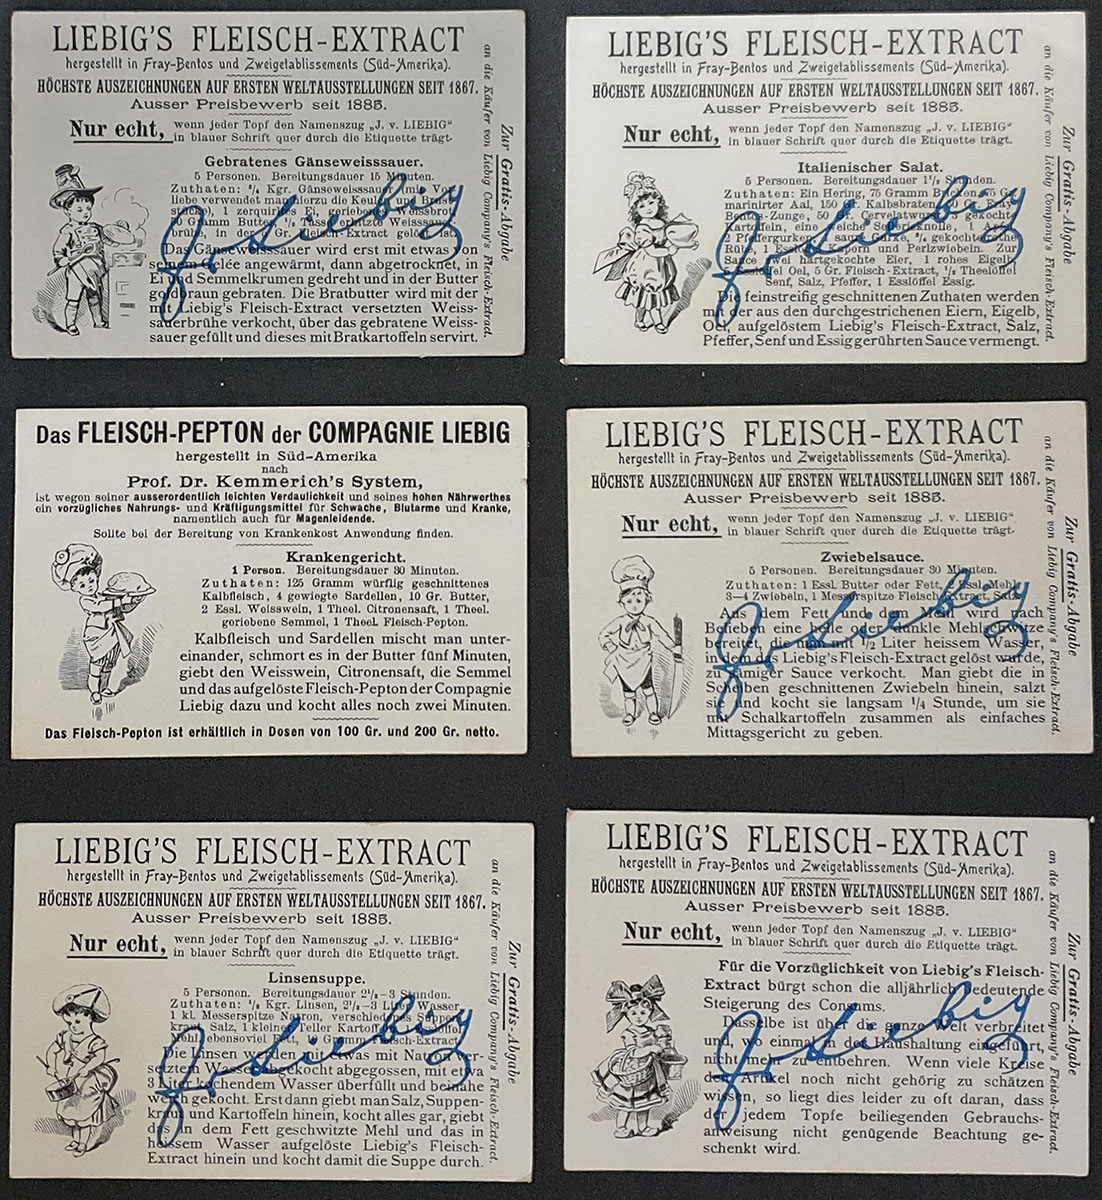 LIEBIG'S FLEISCH-EXTRACT
hergestellt in Fray-Bentos und Zweigetablissements (Süd-Amerika).
HÖCHSTE AUSZEICHNUNGEN AUF ERSTEN WELTAUSSTELLUNGEN SEIT 1867.
Ausser Preisbewerb seit 1885.
Nur echt, wenn jeder Topf den Namenszug „J. v. LIEBIG"
in blauer Schrift quer durch die Etiquette trägt.
Gebratenes Gänseweisssauer.
5 Personen. Bereitungsdauer 15 Minuten.
Zuthaten: Kgr. Gänseweisssauer (mit Vor-
liebe verwendet man hierzu die Keulen und Brust-
stücke), 1 zerquirltes Ei, geriebenes Weissbrot,
Gramm Butter, Tasse Weisssauer-
brühe, in der Gr. Fleisch-Extract gelöst ist.
Das Gänseweisssauer wird erst mit etwas von
seinem Gelée angewärmt, dann abgetrocknet, in
Ei und Semmelkrumen gedreht und in der Butter
goldbraun gebraten. Die Bratbutter wird mit der
mit Liebig's Fleisch-Extract versetzten Weiss-
sauerbrühe verkocht, über das gebratene Weiss-
sauer gefüllt und dieses mit Bratkartoffeln servirt.
Zur Gratis-Abgabe
an die Käufer von Liebig Company's Fleisch-Extract.
J v Liebig
LIEBIG'S FLEISCH-EXTRACT
hergestellt in Fray-Bentos und Zweigetablissements (Süd-Amerika).
HÖCHSTE AUSZEICHNUNGEN AUF ERSTEN WELTAUSSTELLUNGEN SEIT 1867.
Ausser Preisbewerb seit 1885.
Nur echt, wenn jeder Topf den Namenszug „J. v. LIEBIG"
in blauer Schrift quer durch die Etiquette trägt.
Italienischer Salat.
5 Personen. Bereitungsdauer 1½ Stunden.
Zuthaten: Ein Hering, 75 Gramm Bricken, 75 Gr.
marinirter Aal, 150 Gr. Kalbsbraten, Gr. Fray
Bentos-Zunge, 50 Gr. Cervelatwurst, gekochte
Kartoffeln, eine weiche Sellerieknolle, 1 Apfel,
2 Pfeffergurken, saure Gurke, gekochte rothe
Rübe, 1 Esslöffel Kapern und Perlzwiebeln. Zur
Sauce zwei hartgekochte Eier, 1 rohes Eigelb,
Esslöffel Oel, 5 Gr. Fleisch-Extract, Theelöffel
Senf, Salz, Pfeffer, 1 Esslöffel Essig.
Die feinstreifig geschnittenen Zuthaten werden
mit der aus den durchgestrichenen Eiern, Eigelb,
Oel, aufgelöstem Liebig's Fleisch-Extract, Salz,
Pfeffer, Senf und Essig gerührten Sauce vermengt.
Zur Gratis-Abgabe
an die Käufer von Liebig Company's Fleisch-Extract.
J v Liebig
Das FLEISCH-PEPTON der COMPAGNIE LIEBIG
hergestellt in Süd-Amerika
nach
Prof. Dr. Kemmerich's System,
ist wegen seiner ausserordentlich leichten Verdaulichkeit und seines hohen Nährwerthes
ein vorzügliches Nahrungs- und Kräftigungsmittel für Schwache, Blutarme und Kranke,
namentlich auch für Magenleidende.
Sollte bei der Bereitung von Krankenkost Anwendung finden.
Krankengericht.
1 Person. Bereitungsdauer 30 Minuten.
Zuthaten: 125 Gramm würflig geschnittenes
Kalbfleisch, 4 gewiegte Sardellen, 10 Gr. Butter,
2 Essl. Weisswein, 1 Theel. Citronensaft, 1 Theel.
geriebene Semmel, 1 Theel. Fleisch-Pepton.
Kalbfleisch und Sardellen mischt man unter-
einander, schmort es in der Butter fünf Minuten,
giebt den Weisswein, Citronensaft, die Semmel
und das aufgelöste Fleisch-Pepton der Compagnie
Liebig dazu und kocht alles noch zwei Minuten.
Das Fleisch-Pepton ist erhältlich in Dosen von 100 Gr. und 200 Gr. netto.
LIEBIG'S FLEISCH-EXTRACT
hergestellt in Fray-Bentos und Zweigetablissements (Süd-Amerika).
HÖCHSTE AUSZEICHNUNGEN AUF ERSTEN WELTAUSSTELLUNGEN SEIT 1867.
Ausser Preisbewerb seit 1885.
Nur echt, wenn jeder Topf den Namenszug „J. v. LIEBIG"
in blauer Schrift quer durch die Etiquette trägt.
Zwiebelsauce.
5 Personen. Bereitungsdauer 30 Minuten.
Zuthaten: 1 Essl. Butter oder Fett, Essl. Mehl,
3—4 Zwiebeln, 1 Messerspitze Fleisch-Extract, Salz.
Aus dem Fett und dem Mehl wird nach
Belieben eine helle oder dunkle Mehlschwitze
bereitet, die man mit ½ Liter heissem Wasser,
in dem das Liebig's Fleisch-Extract gelöst wurde,
zu sämiger Sauce verkocht. Man giebt die in
Scheiben geschnittenen Zwiebeln hinein, salzt
sie und kocht sie langsam ¼ Stunde, um sie
mit Schalkartoffeln zusammen als einfaches
Mittagsgericht zu geben.
Zur Gratis-Abgabe
an die Käufer von Liebig Company's Fleisch-Extract.
J v Liebig
LIEBIG'S FLEISCH-EXTRACT
hergestellt in Fray-Bentos und Zweigetablissements (Süd-Amerika).
HÖCHSTE AUSZEICHNUNGEN AUF ERSTEN WELTAUSSTELLUNGEN SEIT 1867.
Ausser Preisbewerb seit 1885.
Nur echt, wenn jeder Topf den Namenszug „J. v. LIEBIG"
in blauer Schrift quer durch die Etiquette trägt.
Linsensuppe.
5 Personen. Bereitungsdauer 2½—3 Stunden.
Zuthaten: ½ Kgr. Linsen, 2½—3 Liter Wasser,
1 kl. Messerspitze Natron, verschiedenes Suppen-
kraut, Salz, 1 kleiner Teller Kartoffeln, Mehl, ebensoviel Fett, Gramm Fleisch-Extract.
Die Linsen werden mit etwas mit Natron ver-
setztem Wasser abgekocht, abgegossen, mit etwa
3 Liter kochendem Wasser überfüllt und beinahe
weich gekocht. Erst dann giebt man Salz, Suppen-
kraut und Kartoffeln hinein, kocht alles gar, giebt
das in dem Fett geschwitzte Mehl und das in
heissem Wasser aufgelöste Liebig's Fleisch-
Extract hinein und kocht damit die Suppe durch.
Zur Gratis-Abgabe
an die Käufer von Liebig Company's Fleisch-Extract.
J v Liebig
LIEBIG'S FLEISCH-EXTRACT
hergestellt in Fray-Bentos und Zweigetablissements (Süd-Amerika).
HÖCHSTE AUSZEICHNUNGEN AUF ERSTEN WELTAUSSTELLUNGEN SEIT 1867.
Ausser Preisbewerb seit 1885.
Nur echt, wenn jeder Topf den Namenszug „J. v. LIEBIG"
in blauer Schrift quer durch die Etiquette trägt.
Für die Vorzüglichkeit von Liebig's Fleisch-
Extract bürgt schon die alljährlich bedeutende
Steigerung des Consums.
Dasselbe ist über die ganze Welt verbreitet
und, wo einmal in der Haushaltung eingeführt,
nicht mehr zu entbehren. Wenn viele Kreise
den Artikel noch nicht gehörig zu schätzen
wissen, so liegt dies leider zu oft daran, dass
der jedem Topfe beiliegenden Gebrauchs-
anweisung nicht genügende Beachtung ge-
schenkt wird.
Zur Gratis-Abgabe
an die Käufer von Liebig Company's Fleisch-Extract.
J v Liebig